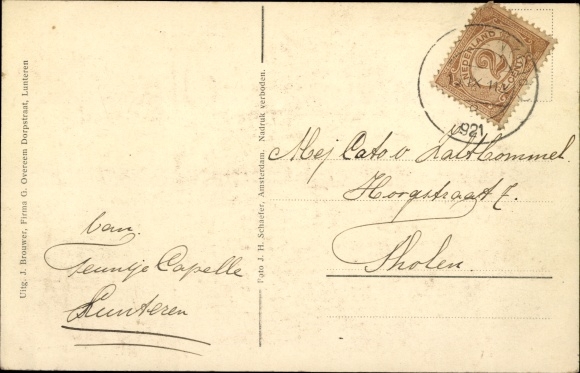 Uitg. J. Brouwer, Firma G. Overeem Dorpstraat, Lunteren
van
Teuntje Capelle
Lunteren
Foto J. H. Schaefer, Amsterdam. Nadruk verboden.
NEDERLAND
2
1921
Mej Cato v. Zalt Bommel
Hoogstraat 7.
Tholen.